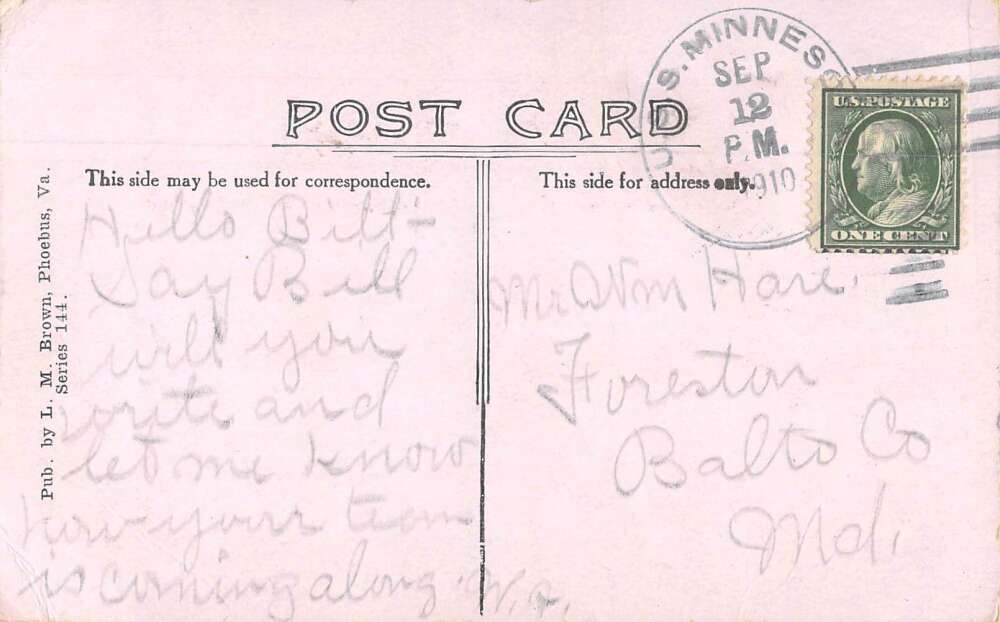 POST CARD
U.S.S. MINNESO
SEP
12
P.M.
1910
U.S.POSTAGE
ONE CENT
This side may be used for correspondence.
This side for address only.
Pub. by L. M. Brown, Phoebus, Va.
Series 144.
Hello Bill-
Say Bill
will you
write and
let me know
how your team
is coming along.
Mr Wm Hare,
Foreston
Balto Co
Md.